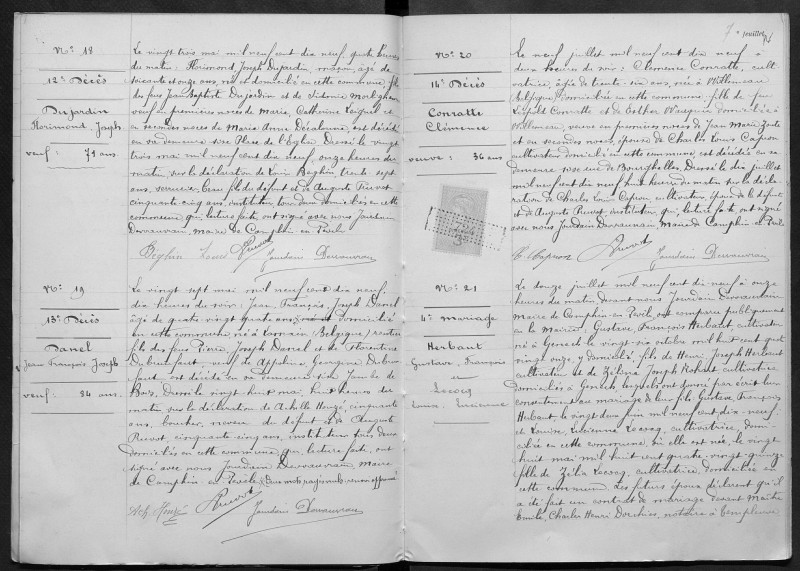 N° 18
12e Décès
Dujardin
Florimond, Joseph
veuf : 71 ans
Le vingt trois mai mil neuf cent dix neuf, quatre heures
du matin : Florimond, Joseph Dujardin, maçon, âgé de
soixante et onze ans, né et domicilié en cette commune, fils
des feus Jean Baptiste Dujardin et de Sidonie
veuf en premières noces de Marie, Catherine
en secondes noces de Marie Anne Delalonne, est décédé
en sa demeure sise Place de l'Eglise. Dressé le vingt
trois mai mil neuf cent dix neuf, onze heures du
matin, sur la déclaration de Louis Beghin, trente sept
ans, verrier, beau fils du défunt et de Auguste Picvot
cinquante cinq ans, instituteur, tous deux domiciliés en cette
commune qui, lecture faite ont signé avec nous Jourdain
Duvauvrau, maire de Camphin en Pévèle
Beghin Louis
N° 19
13e Décès
Danel
Jean, François, Joseph
veuf : 84 ans.
Le vingt sept mai mil neuf cent dix neuf,
dix heures du soir : Jean, François, Joseph Danel
âgé de quatre vingt quatre ans, domicilié
en cette commune, né à (Belgique), rentier
fils des feus Pierre, Joseph Danel et de Florentine
veuf de Appoline, Georgine
est décédé en sa demeure sise
Bois. Dressé le vingt huit mai, huit heures du
matin sur la déclaration de Achille Houzé, cinquante
ans, boucher, neveu du défunt et de Auguste
Picvot, cinquante cinq ans, instituteur tous deux
domiciliés en cette commune qui, lecture faite, ont
signé avec nous Jourdain Duvauvrau maire
de Camphin en Pévèle
Ach Houzé
7e
juillet
N° 20
14e Décès
Conratte
Clémence
veuve : 36 ans
Le neuf juillet mil neuf cent dix neuf à
deux heures du soir : Clémence Conratte, culti
vatrice, âgée de trente six ans, née à Willemeau
Belgique, domiciliée en cette commune, fille de feu
Léopold Conratte et de Esther domiciliée à
Willemeau, veuve en premières noces de Jean Marie
et en secondes noces, épouse de Charles Louis Capron
cultivateur domicilié en cette commune est décédée en sa
demeure sise rue de Bourghelles. Dressé le dix juillet
mil neuf cent dix neuf huit heures du matin sur la décla
ration de Charles Louis Capron, cultivateur, époux de la défunte
et de Auguste Picvot, instituteur, qui, lecture faite, ont signé
avec nous Jourdain Duvauvrau Maire de Camphin en Pévèle
C. L. Capron
N° 21
4e Mariage
Herbaut
Gustave, François
et
Lecocq
Louise, Lucienne
Le douze juillet mil neuf cent dix neuf à onze
heures du matin devant nous Jourdain Duvauvrau
Maire de Camphin en Pévèle ont comparu publiquement
en la mairie, Gustave, François Herbaut, cultivateur
né à Genech le vingt six octobre mil huit cent quatre
vingt onze, y domicilié, fils de Henri, Joseph Herbaut
cultivateur et de Zélina Joseph Rohart cultivatrice
domiciliés à Genech, lesquels ont donné par écrit leur
consentement au mariage de leur fils Gustave François
Herbaut, le vingt deux juin mil neuf cent dix-neuf
et Louise, Lucienne Lecocq, cultivatrice, domi
ciliée en cette commune, où elle est née, le vingt
huit mai mil huit cent quatre-vingt-quinze
fille de Zélia Lecocq, cultivatrice, domiciliée en
cette commune. Les futurs époux déclarent qu'il
a été fait un contrat de mariage devant Maître
Emile, Charles Henri notaire à Templeuve